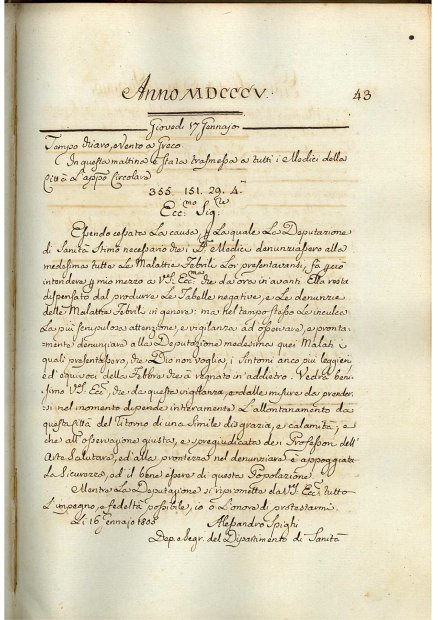 Anno MDCCCV.
43
Giovedì 17 Gennajo
Tempo chiaro, e Vento a Greco
In questa mattina è stata trasmessa a tutti i Medici della
Città L'appo Circolare
355. 151. 29. 4.
Ecc:mo Sig:re
Essendo cessata La causa, p La quale La Deputazione
di Sanità Stimò necessario che i SS.ri Medici denunziassero alla
medesima tutte Le Malattie Febrili Lor presentavansi, fà perciò
intendere p mio mezzo a VS. Ecc:ma che da ora in avanti Ella resta
dispensato dal produrre Le Tabelle negative, e Le denunzie
delle Malattie Febrili in genere: ma nel tempo stesso Le inculca
La più scrupolosa attenzione, e vigilanza ad osservare, e pronta-
mente denunziare alla Deputazione medesima quei Malati i
quali presentassero, che Dio non voglia, i Sintomi anco più leggieri
ed equivoci della Febbre che è regnata in addietro. Vedrà beni-
ssimo VS. Ecc:ma, che da questa vigilanza, e dalle misure da prender-
si nel momento dipende interamente L'allontanamento da
questa Città del ritorno di una Simile disgrazia, e calamità, e
che all'osservazione giusta, e spregiudicata dei Professori dell'
Arte Salutare, ed alla prontezza nel denunziare è appoggiata
La Sicurezza, ed il bene essere di questa Popolazione.
Mentre La Deputazione si ripromette da VS. Ecc:ma tutto
L'impegno, e fedeltà possibile, io ò L'onore di protestarmi.
Lì 16 Gennajo 1805
Alessandro Spighi
Dep. e Segr. del Dipartimento di Sanità